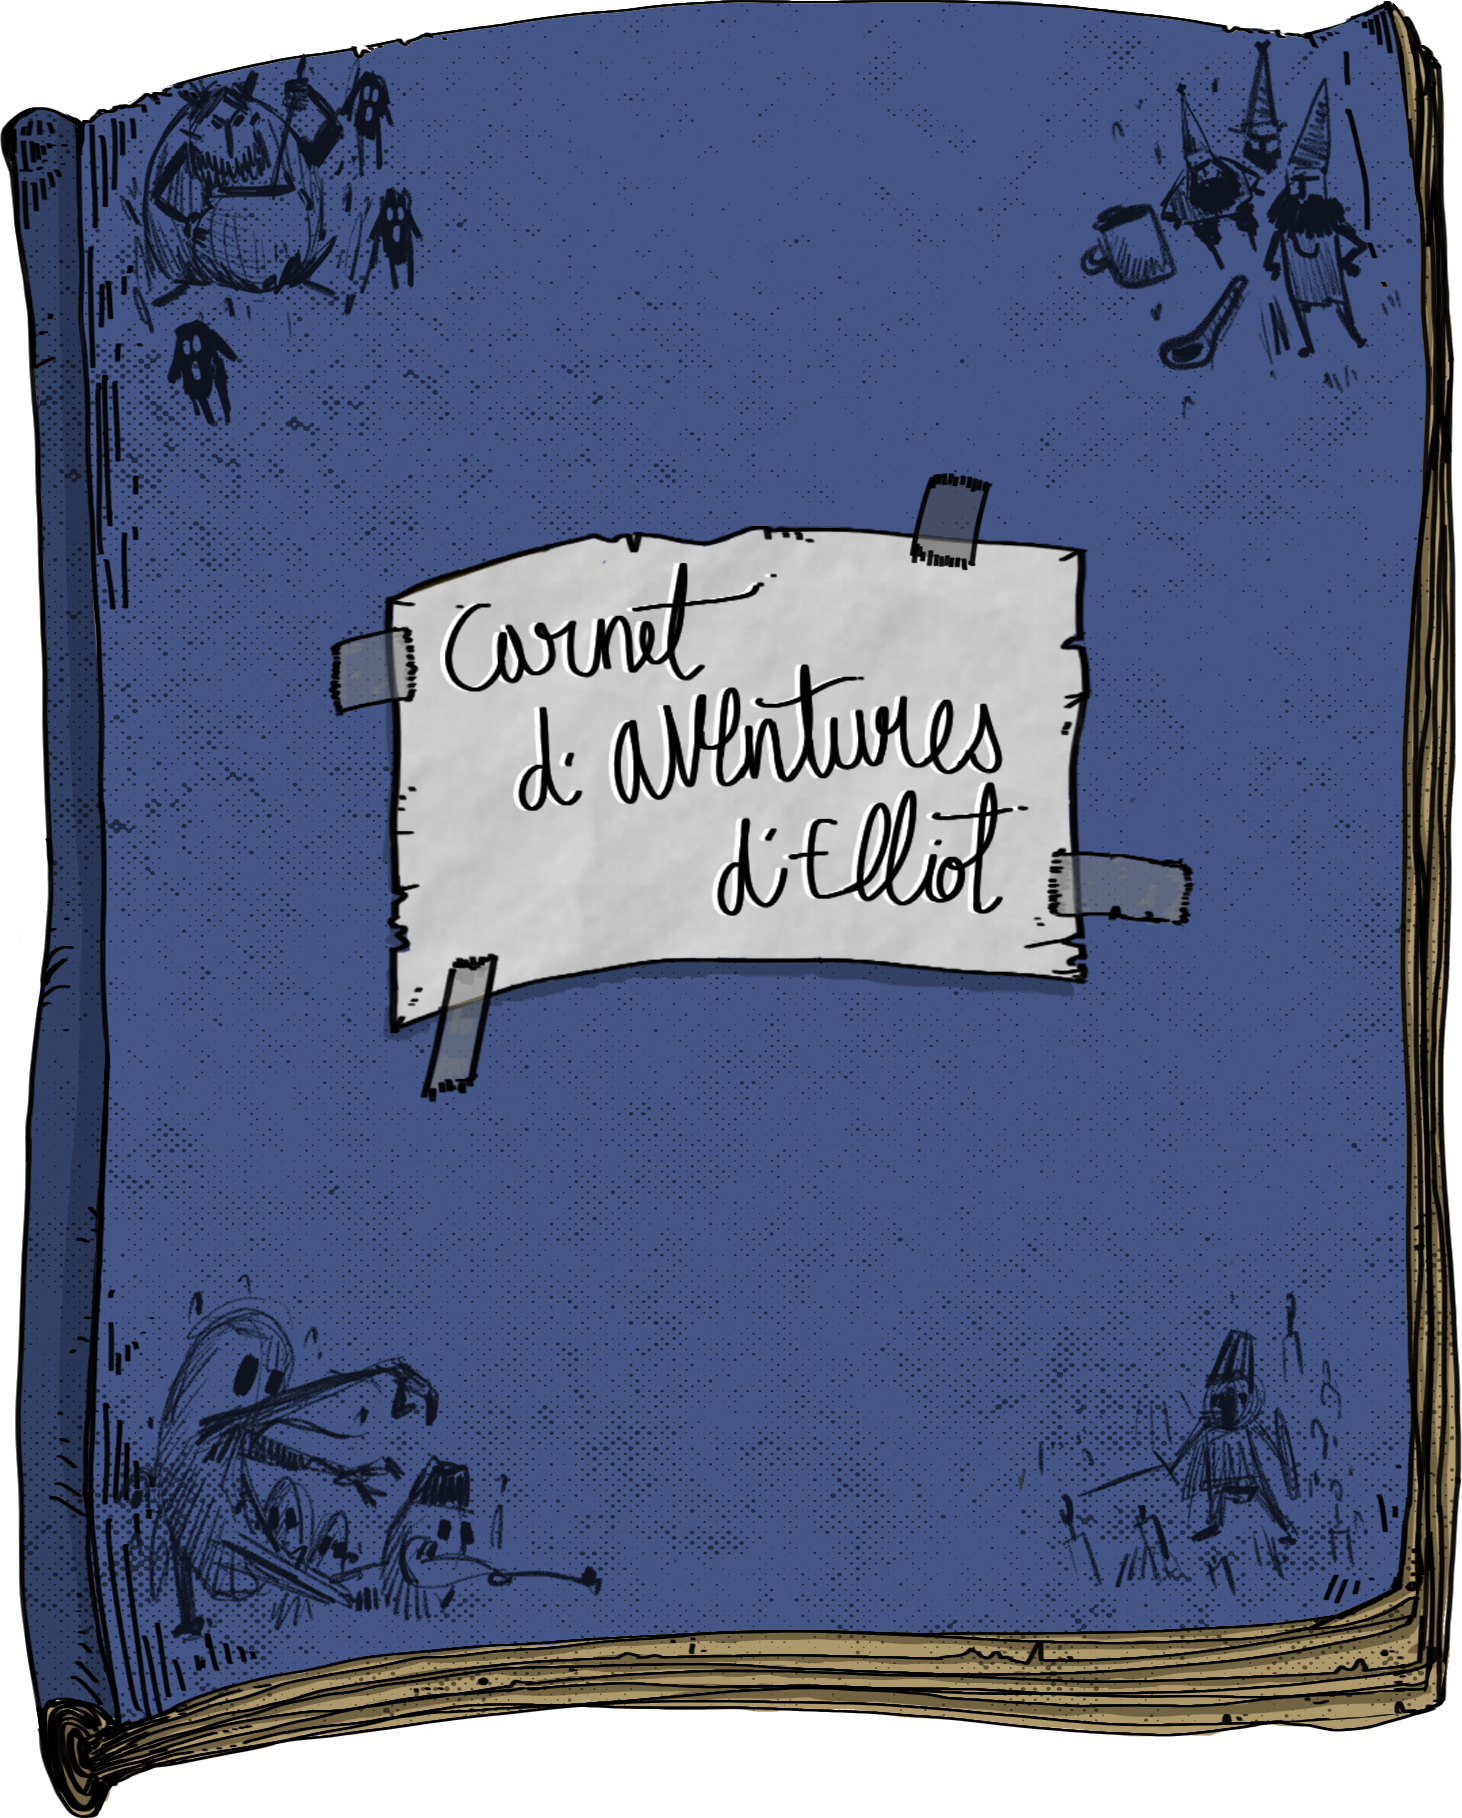 Carnet
d'aventures
d'Elliot